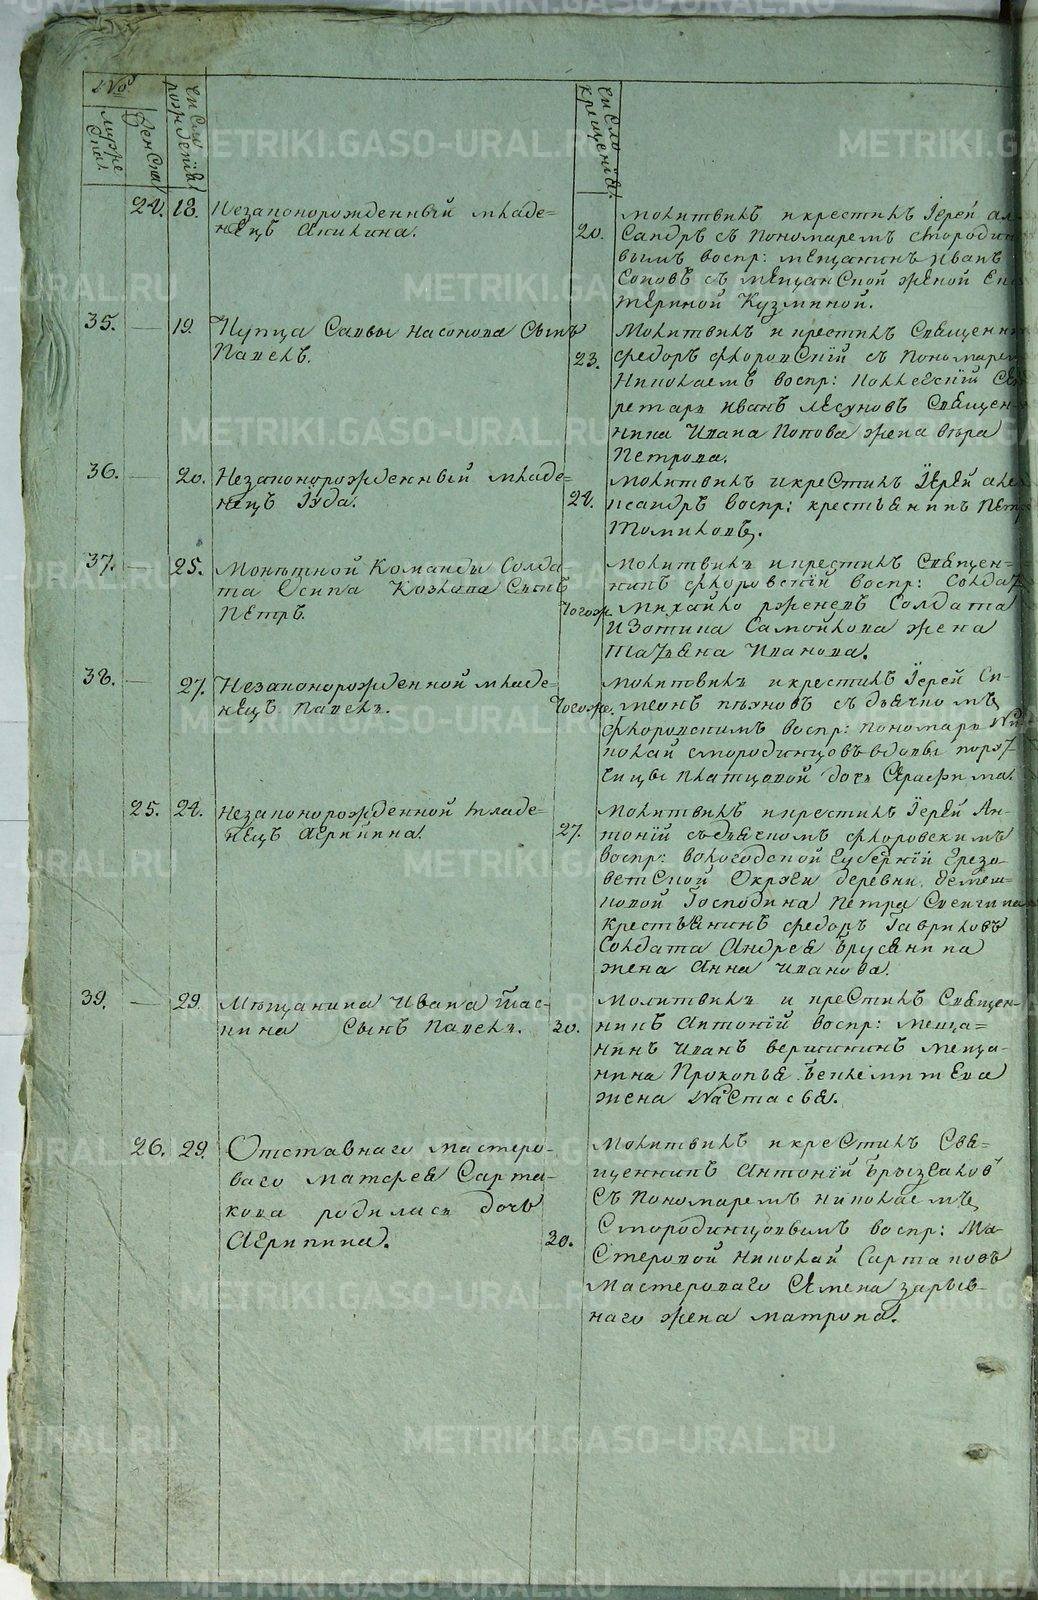 №
мужеска.
женска
число рожденія
число крещенія.
24. 18. Незаконорожденный младе=
нецъ Акилина.
20. молитвилъ и крестилъ Іерей але
сандръ съ пономаремъ смородин
вымъ воспр: мещанинъ Иванъ
Соповъ съ мещанской женой Ека
териной Кузминой.
35. — 19. Купца Саввы насонова сынъ
Павелъ.
23. Молитвилъ и крестилъ Священн
федоръ флоровскій съ пономарем
Николаемъ воспр: коллескій Сек
ретарь иванъ лесуновъ Священ=
ника Ивана Попова жена вѣра
Петрова.
36. — 20. Незаконорожденный младе=
нецъ Іуда.
24. молитвилъ и крестилъ Іерей алек
ксандръ воспр: крестьянинъ Петръ
Томиловъ.
37. — 25. Монѣтной Команды Солда
та Осипа Козлова Сынъ
Петръ.
Тогож. молитвилъ и крестилъ Священ=
никъ флоровскій воспр: солдатъ
Михайло рженевъ Солдата
Изотина Самойлова жена
Татьяна Иванова.
38. — 27. Незаконорожденной младе=
нецъ Павелъ.
Тогож. молитвилъ и крестилъ Іерей Си=
меонъ пѣновъ съ дьячкомъ
флоровскимъ воспр: пономарь Ни
колай смородинцовъ вдовы поруч
чицы платцовой дочь Серафима.
25. 24. незаконорожденной младе=
нецъ Агрипина.
27. молитвилъ и крестилъ Іерей Ан=
тоній съ дьячкомъ флоровскимъ
воспр: вологодской губерніи Грезо=
ветской Округи деревни
Господина Петра
крестьянинъ федоръ Гавриловъ
Солдата Андрея Брусянина
жена Анна Иванова.
39. — 29. Мѣщанина Ивана Плас=
кина сынъ Павелъ.
30. молитвилъ и крестилъ Священ=
никъ Антоній воспр: меща=
нинъ Иванъ вершининъ меща=
нина Прокопья
жена Настасья.
26. 29. Отставнаго мастеро=
ваго матфея Сарта=
кова родилась дочь
Агрипина.
30. молитвилъ и крестилъ Свя=
щенникъ Антоній Брызгаловъ
Съ пономаремъ николаемъ
Смородинцовымъ воспр: ма
стеровой николай Сартаковъ
мастероваго Семена зарыв=
наго жена матрона.